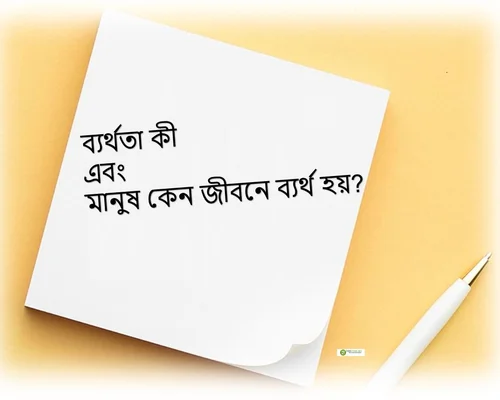 ব্যর্থতা কী
এবং
মানুষ কেন জীবনে ব্যর্থ হয়?